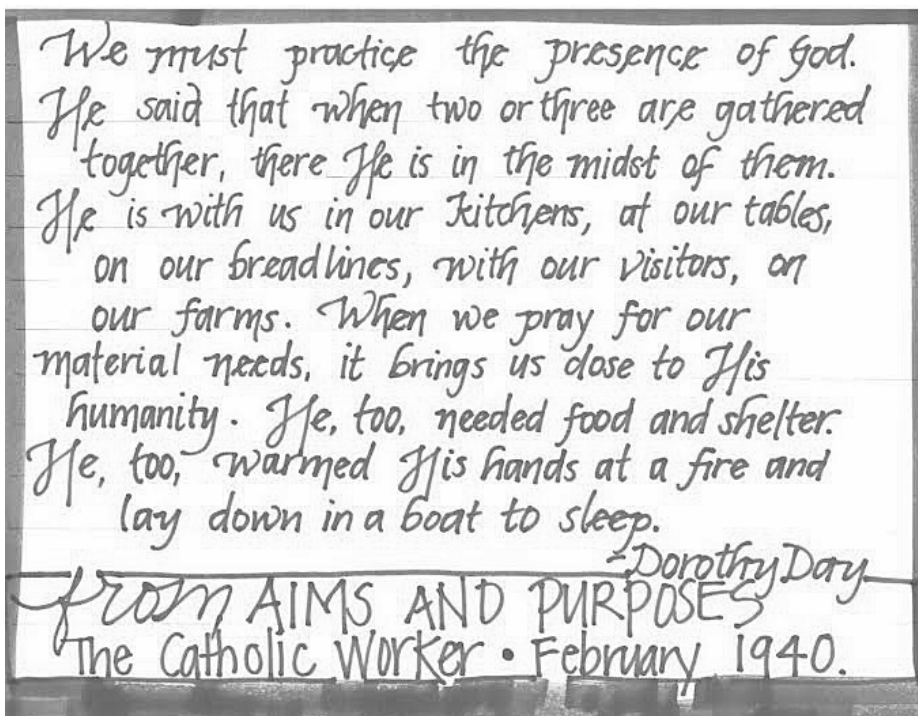 We must practice the presence of God.
He said that when two or three are gathered
together, there He is in the midst of them.
He is with us in our kitchens, at our tables,
on our breadlines, with our visitors, on
our farms. When we pray for our
material needs, it brings us close to His
humanity. He, too, needed food and shelter.
He, too, warmed His hands at a fire and
lay down in a boat to sleep.
-Dorothy Day
from AIMS AND PURPOSES
The Catholic Worker • February 1940.